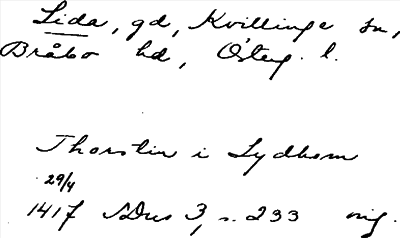 Lida, gd, Kvillinge sn,
Bråbo hd, Österg. l.
Thorstin i Lydhem
29/4
1417 SDns 3, s. 233 orig.